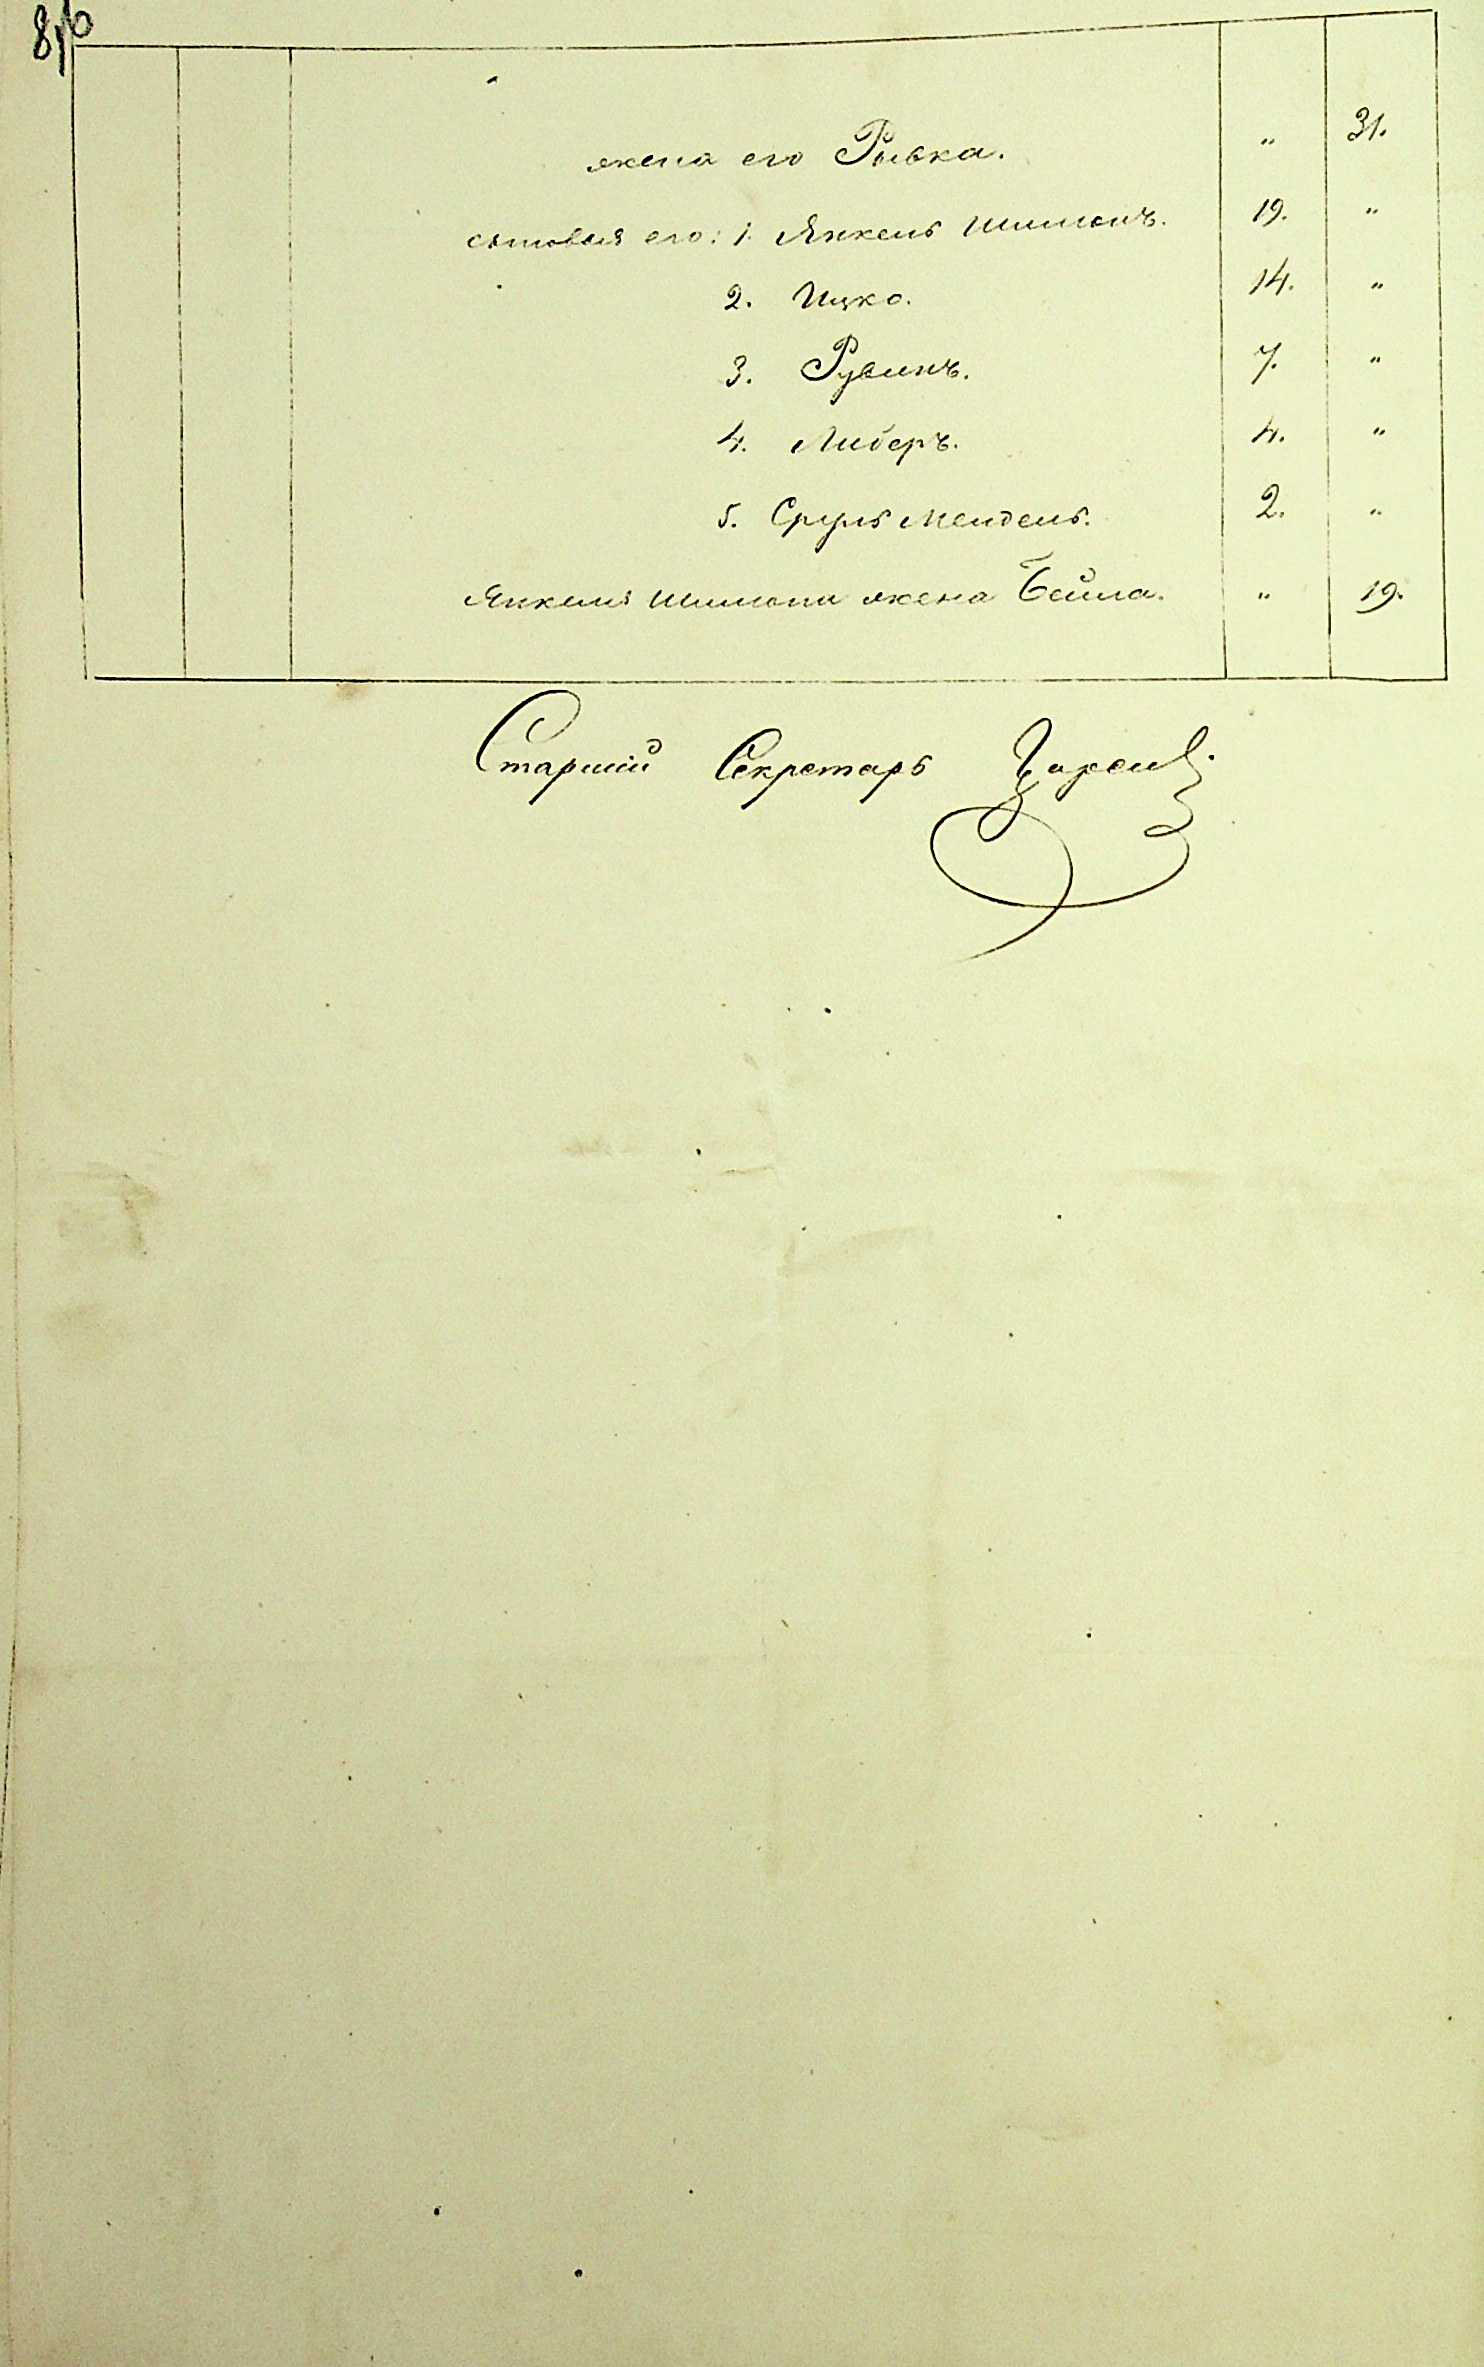 жена его Рывка. " 31.
сыновья его: 1. Янкель Шимонъ. 19. "
2. Ицко. 14. "
3. Рувинъ. 7. "
4. Либеръ. 4. "
5. Сруль Мендель. 2. "
Янкеля Шимона жена Бейла. " 19.
Старшій Секретарь